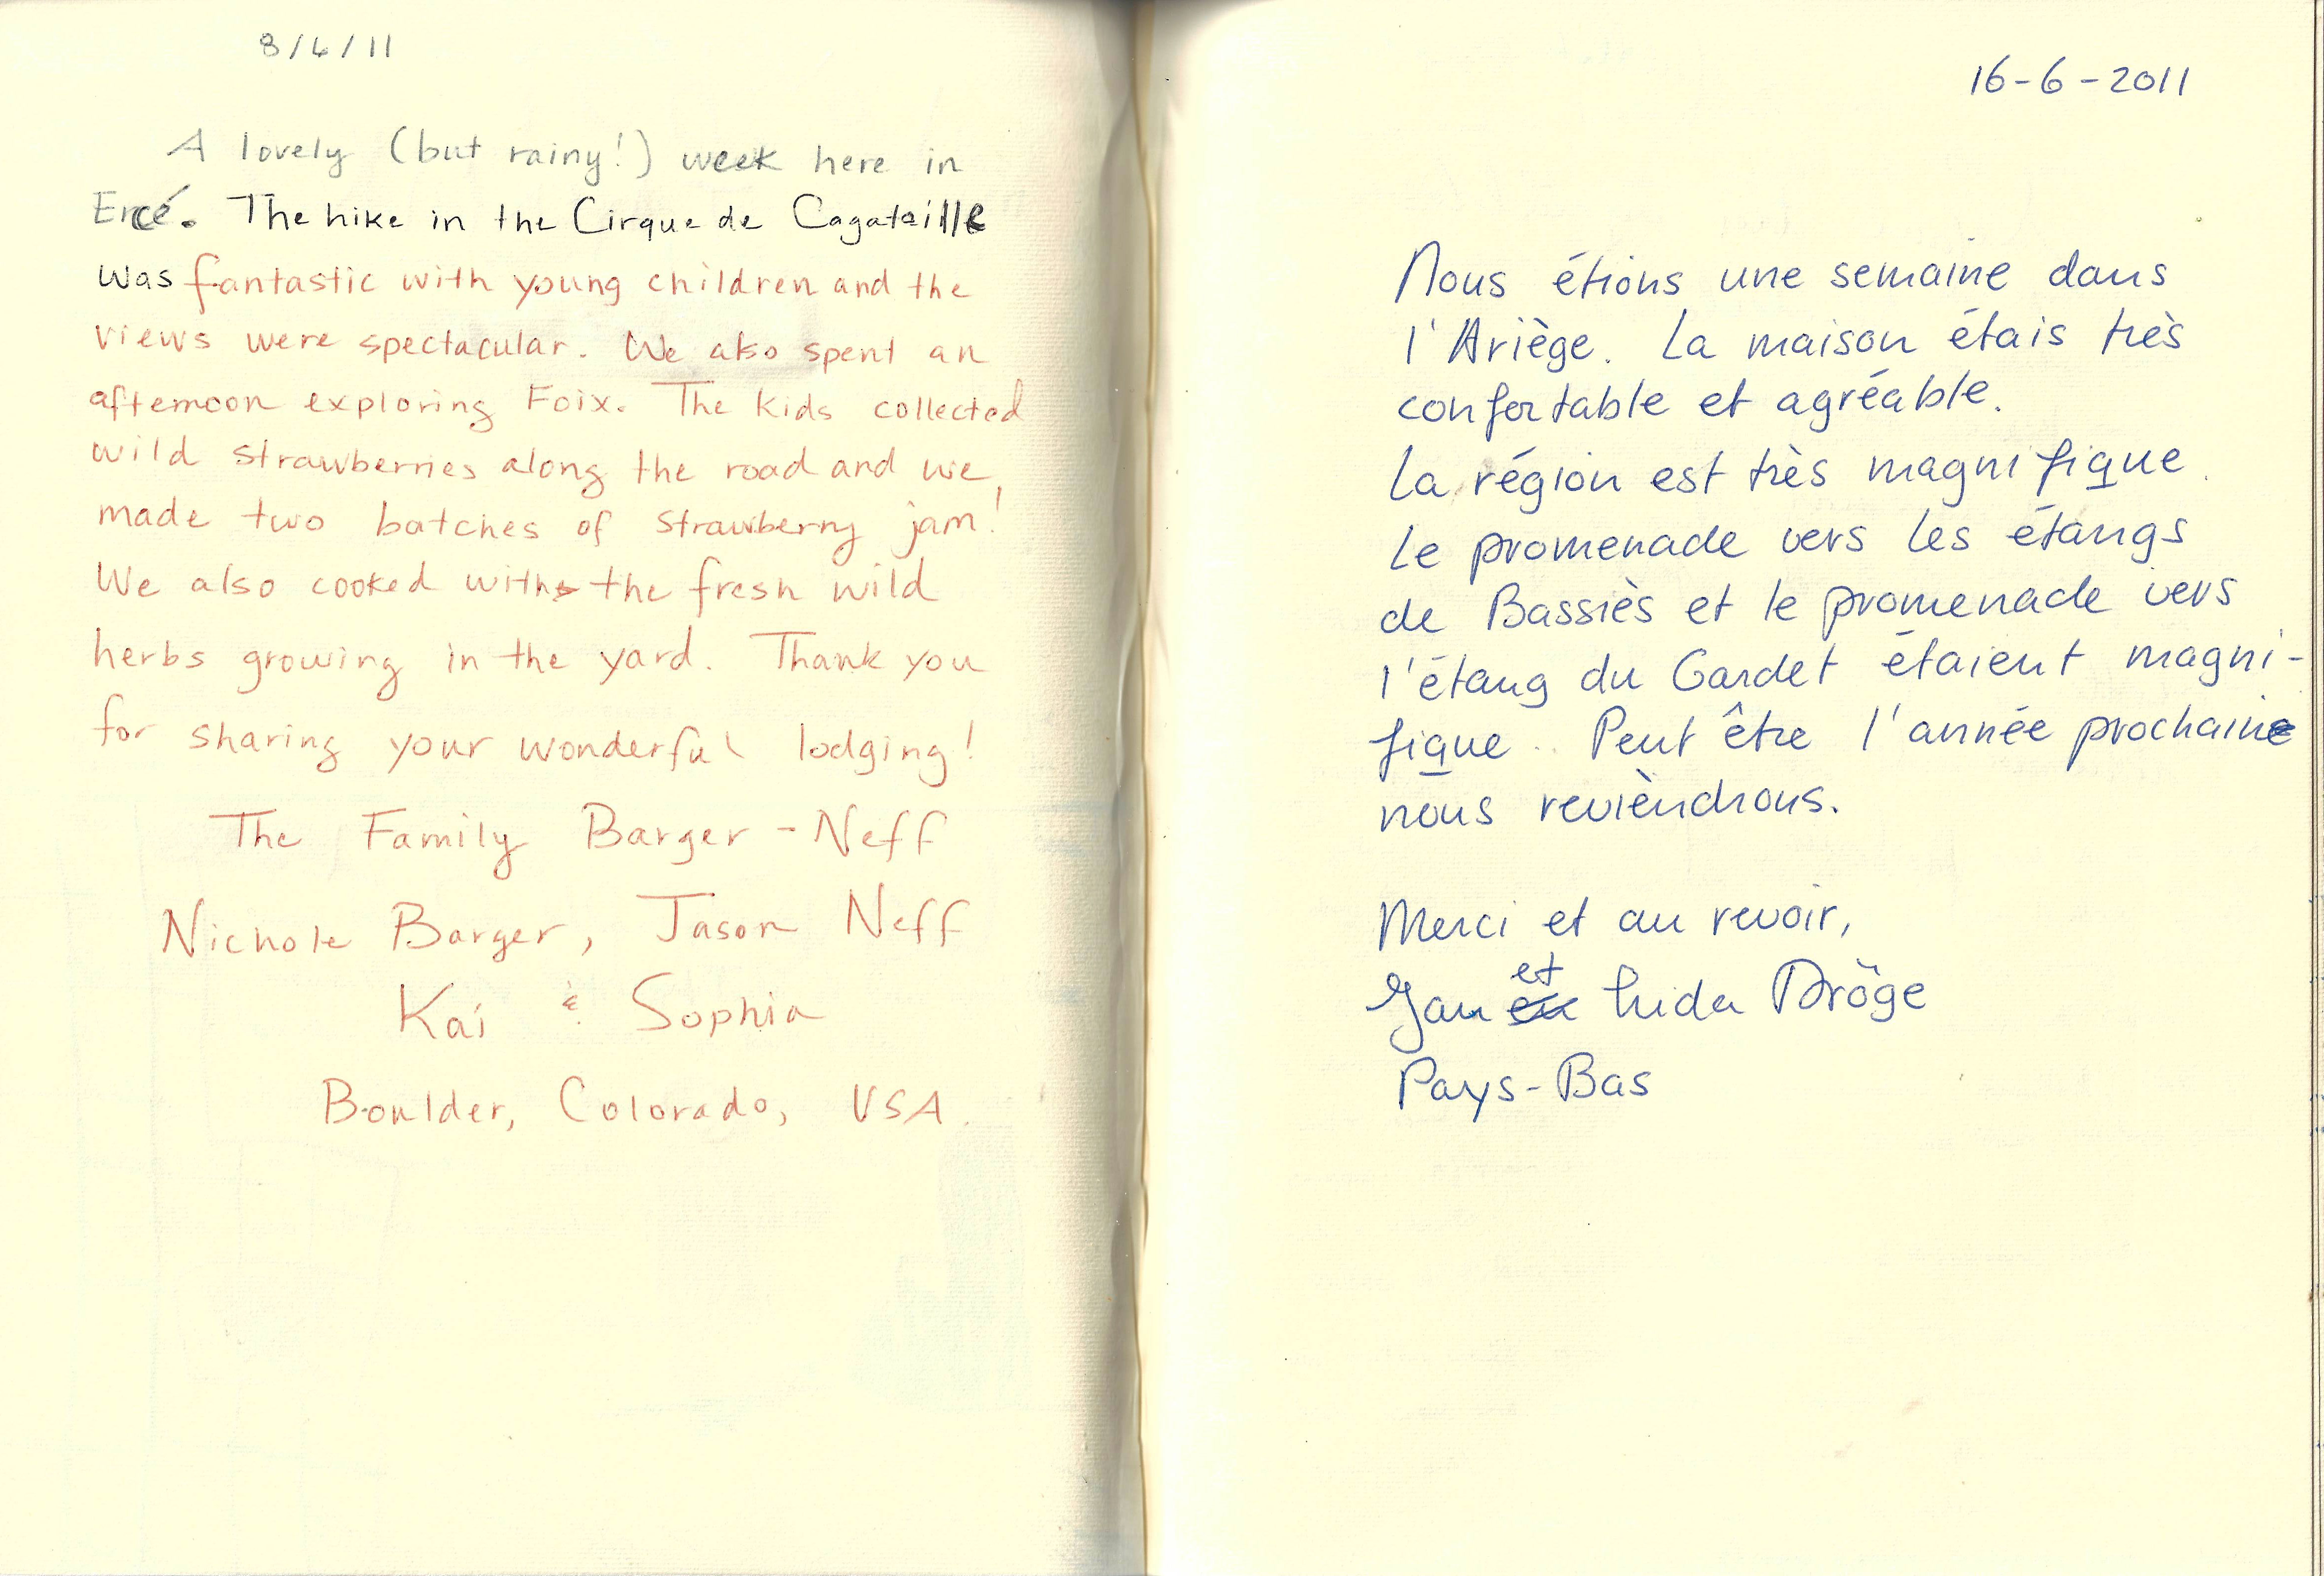 8/6/11
A lovely (but rainy!) week here in
Ercé. The hike in the Cirque de Cagateille
was fantastic with young children and the
views were spectacular. We also spent an
afternoon exploring Foix. The kids collected
wild strawberries along the road and we
made two batches of strawberry jam!
We also cooked with the fresh wild
herbs growing in the yard. Thank you
for sharing your wonderful lodging!
The Family Barger-Neff
Nichole Barger, Jason Neff
Kai & Sophia
Boulder, Colorado, USA.
16-6-2011
Nous étions une semaine dans
l'Ariège. La maison étais très
confortable et agréable.
La région est très magnifique.
Le promenade vers les étangs
de Bassiès et le promenade vers
l'étang du Gardet étaient magni-
fique. Peut être l'année prochaine
nous revièndrons.
Merci et au revoir,
Jan et Dröge
Pays-Bas